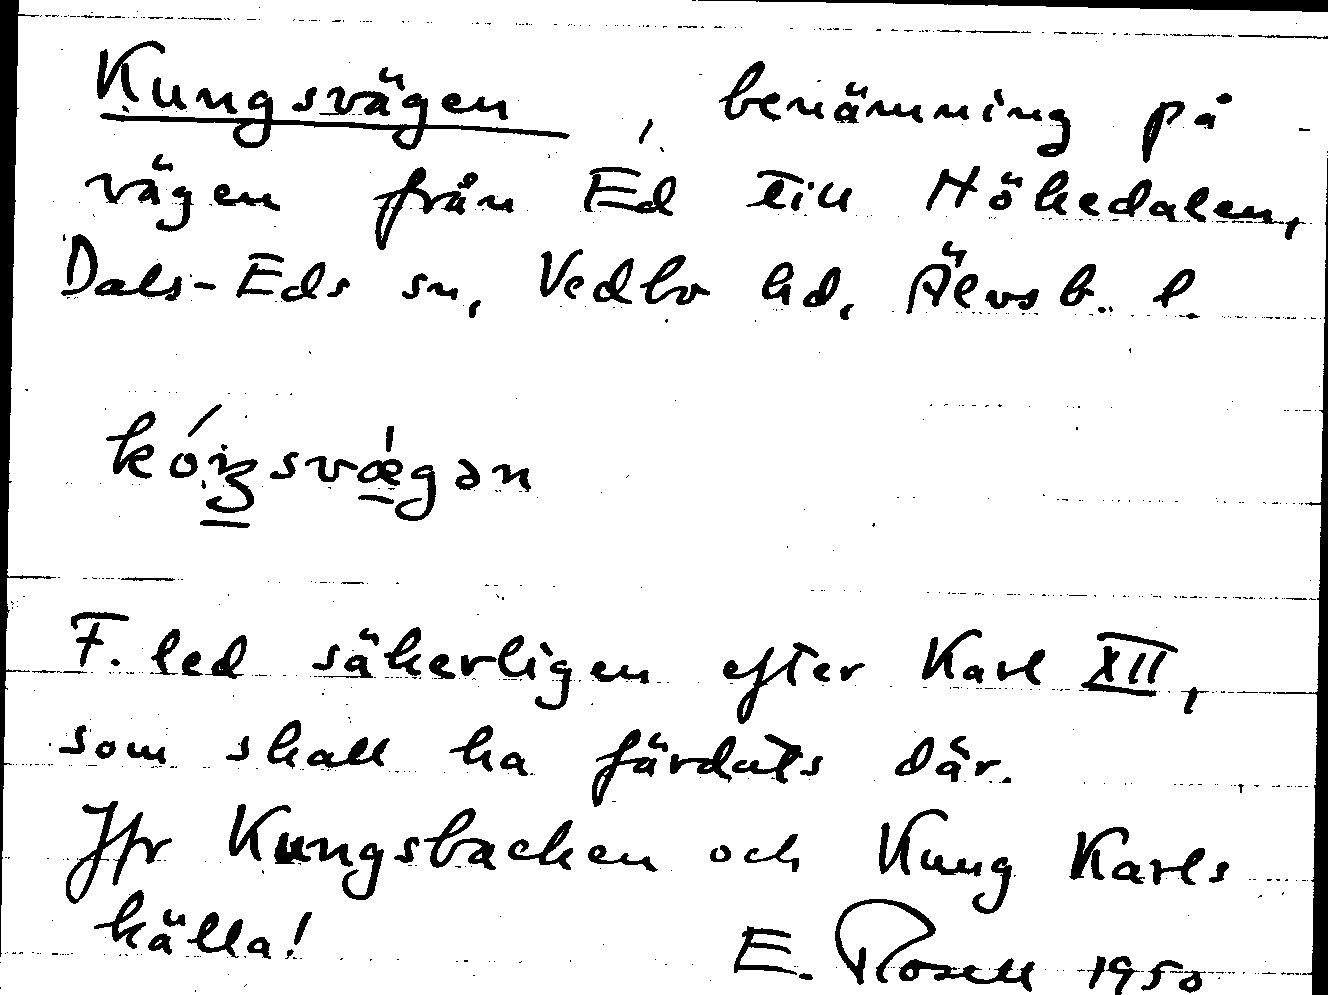 Kungsvägen, benämning på
vägen från Ed till Hökedalen,
Dals-Eds sn, Vedbo hd, Älvsb. l.
kóŋsvǽgən
F. led säkerligen efter Karl XII,
som skall ha färdats där.
Jfr Kungsbacken och Kung Karls
källa!
E. Rosell 1950